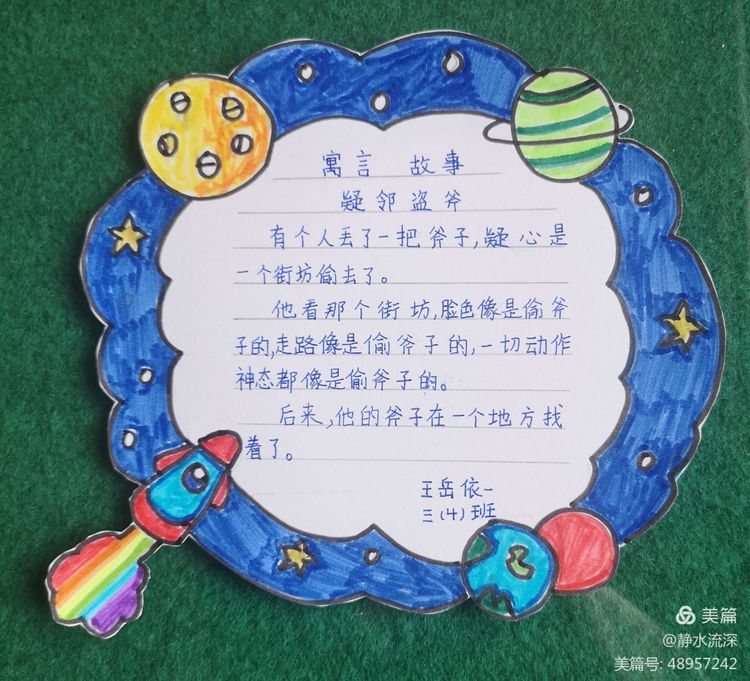 寓言 故事
疑邻盗斧
有个人丢了一把斧子,疑心是
一个街坊偷去了。
他看那个街坊,脸色像是偷斧
子的,走路像是偷斧子的,一切动作
神态都像是偷斧子的。
后来,他的斧子在一个地方找
着了。
王岳依一
三(4)班
美篇
@静水流深
美篇号: 48957242